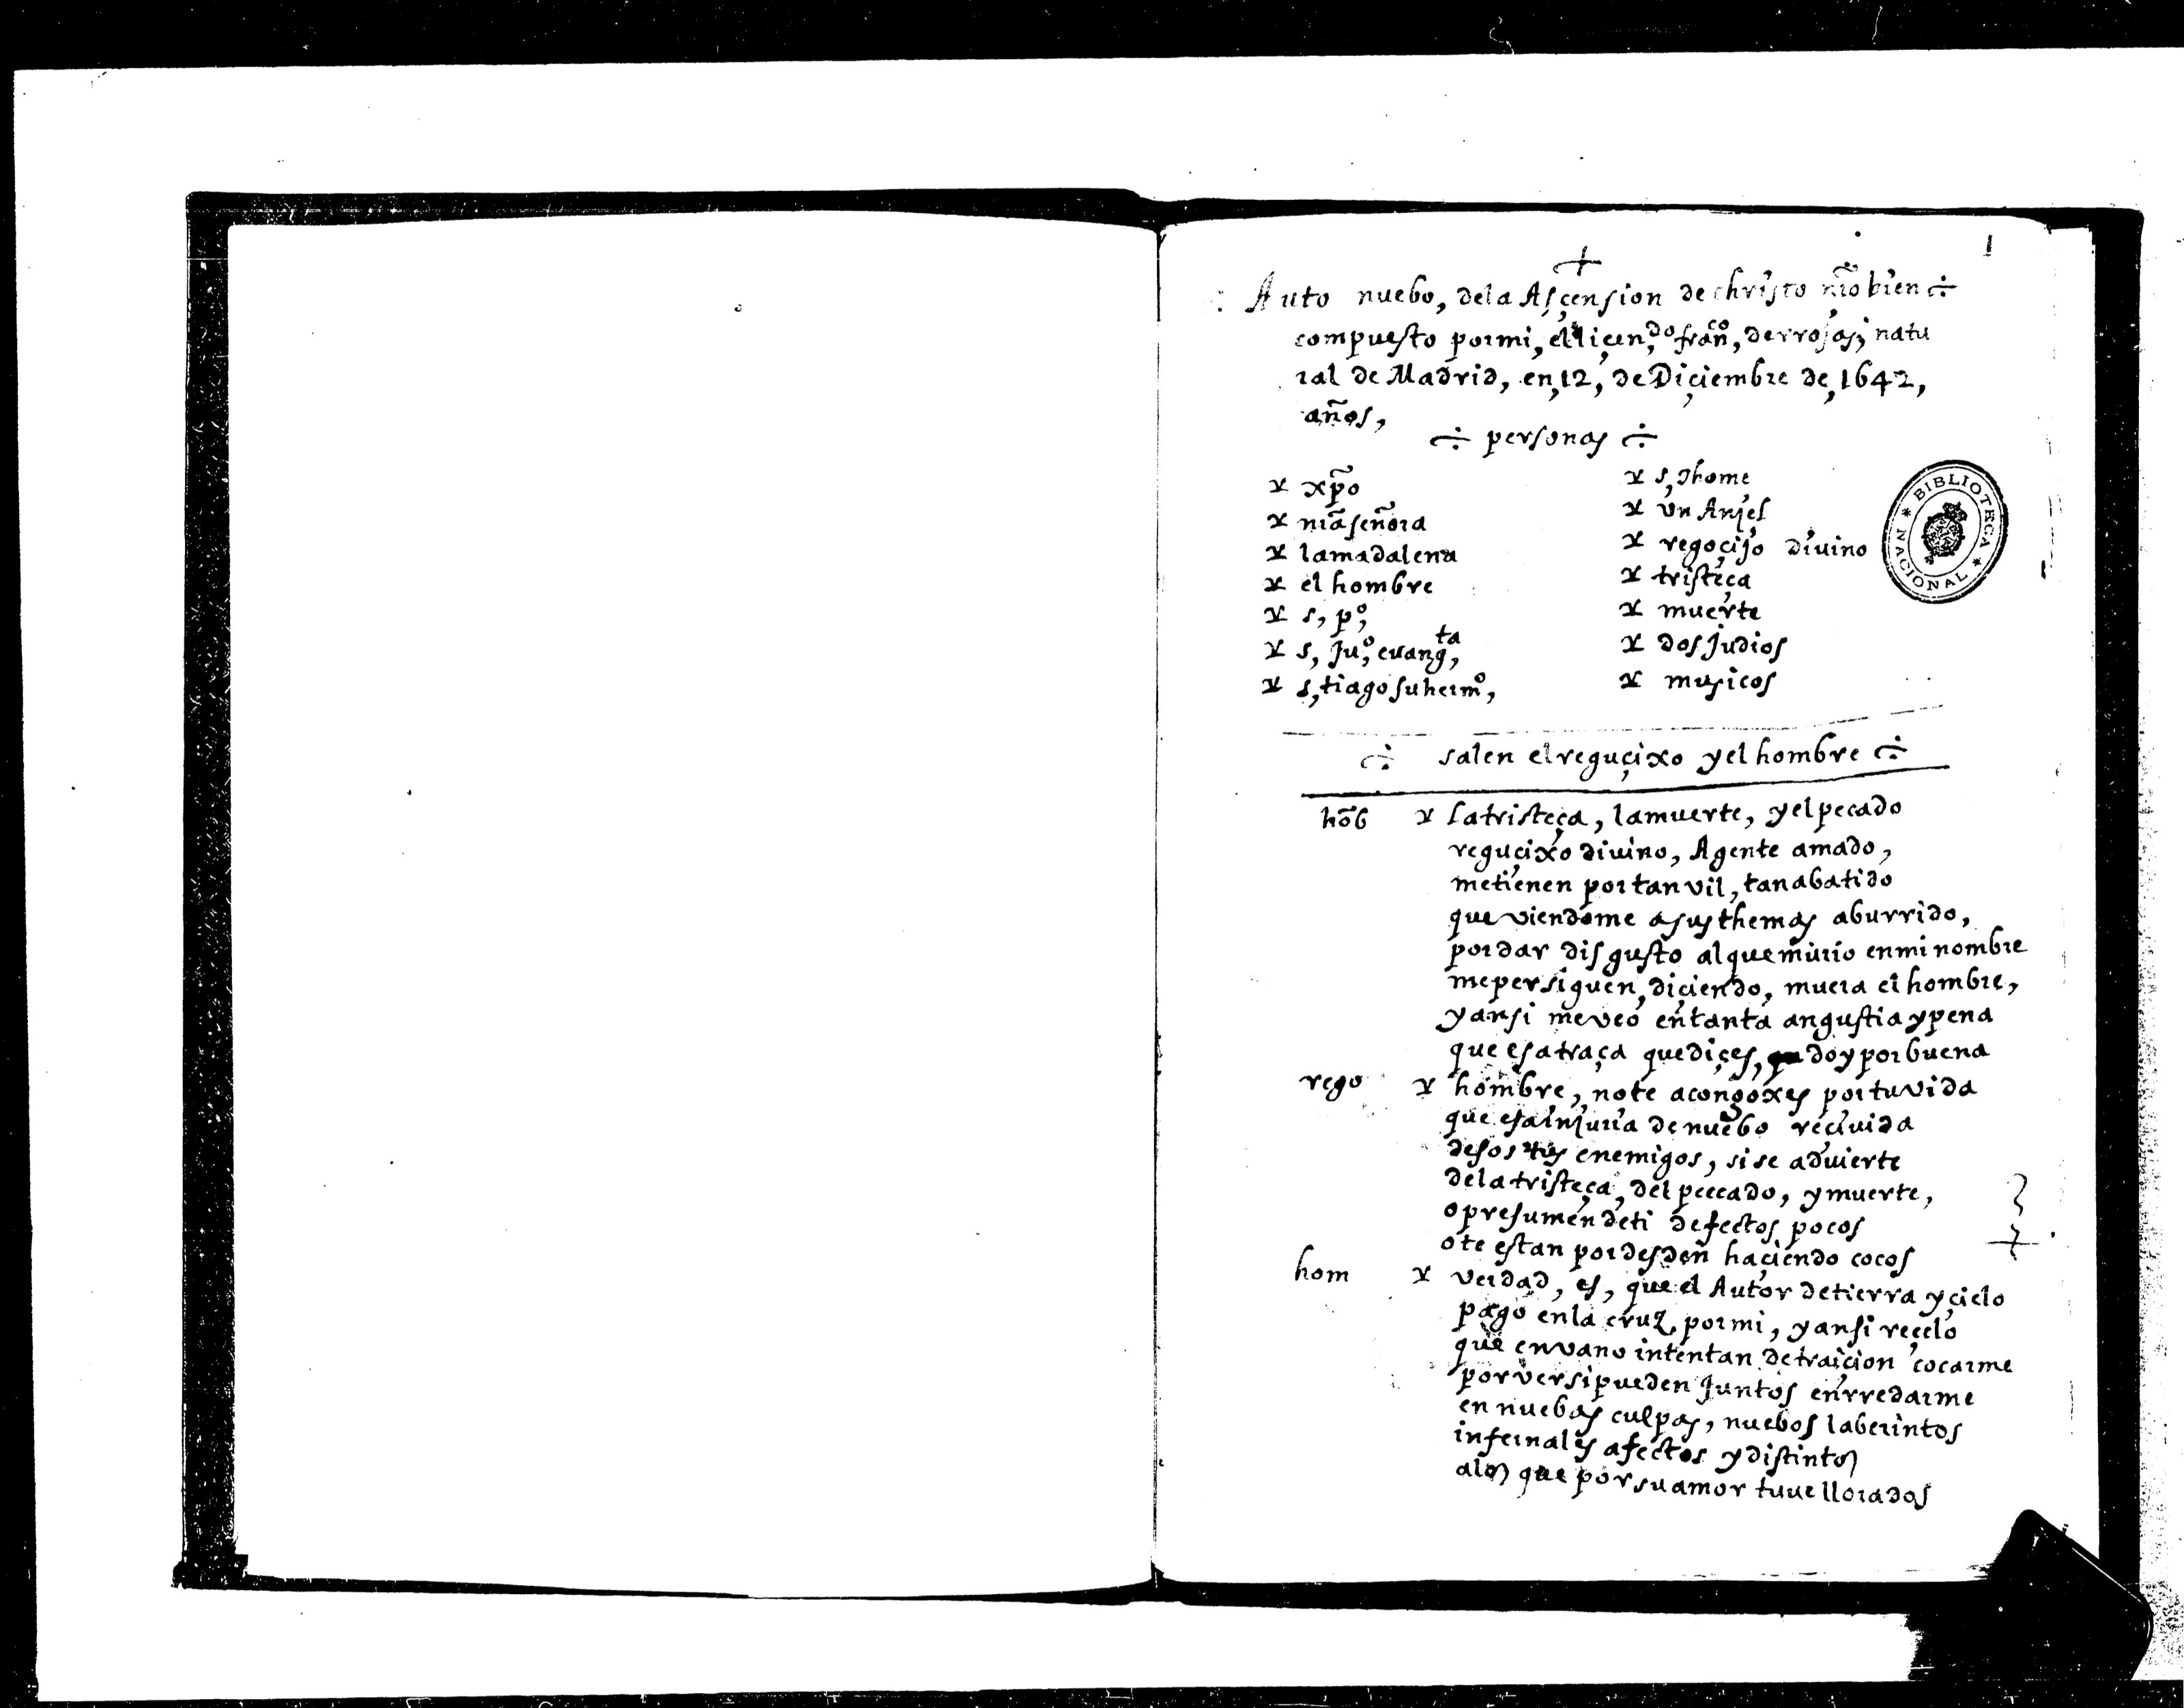 1
+
Auto nuebo, dela Asçension de christo nr̃o bien ÷
compuesto por mi, el liçen,do fran,co derrojas, natu
ral de Madrid, en,12, de Diçiembre de,1642,
años,
÷ personas ÷
x xp̃o
x nr̃a señora
x lamadalena
x el hombre
x s, p.o,
x s, Ju.o, evang,ta
x s,tiago su herm.o,
x s, Thome
x vn Anjel
x regoçijo diuino
x tristeça
x muerte
x dos judios
x musicos
BIBLIOTECA NACIONAL
÷ salen el reguçixo y el hombre ÷
hõb x la tristeça, la muerte, y el pecado
reguçixo diuino, Agente amado,
me tienen por tan vil, tan abatido
que viendome a sus themas aburrido,
por dar disgusto al que murio en mi nombre
me persiguen, diçiendo, muera el hombre,
y ansi me veo en tanta angustia y pena
que esa traça que diçes, doy por buena
rego x hombre, no te acongoxes por tu vida
que esa injuria de nuebo reciuida
desos tus enemigos, si se aduierte
de la tristeça, del peccado, y muerte,
o presumen de ti defectos pocos
o te estan por desden haçiendo cocos
hom x verdad, es, que el Autor de tierra y çielo
pago en la cruz por mi, y ansi reçelo
que en vano intentan de traiçion cocarme
por ver si pueden juntos enrredarme
en nuebas culpas, nuebos laberintos
infernales afectos y distintos
a los que por su amor tuue llorados